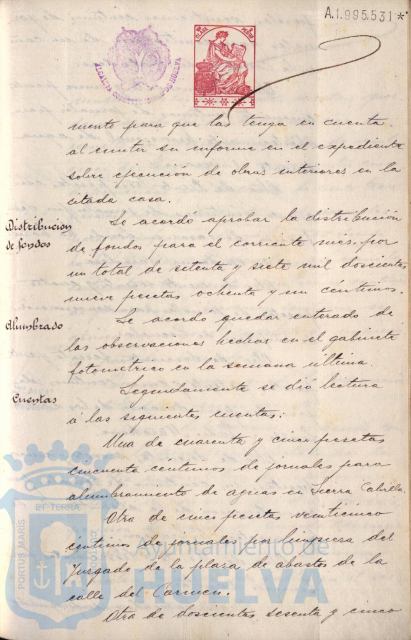 A.1.995.531*
mento para que las tenga en cuenta
al emitir su informe en el expediente
sobre ejecución de obras interiores en la
citada casa.
Distribucion
de fondos
Se acordó aprobar la distribución
de fondos para el corriente mes, por
un total de setenta y siete mil doscientas
nueve pesetas ochenta y un céntimos.
Alumbrado
Se acordó quedar enterado de
las observaciones hechas en el gabinete
fotometrico en la semana última.
Cuentas
Seguidamente se dió lectura
á las siguientes cuentas:
Una de cuarenta y cinco pesetas
cincuenta céntimos de jornales para
alumbramiento de aguas en Sierra Cabello.
Otra de cinco pesetas veinticinco
centimos de jornales por limpieza del
Juzgado de la plaza de abastos de la
calle del Carmen.
Otra de doscientas sesenta y cinco
PORTUS MARIS
ET TERRA
Ayuntamiento de
HUELVA